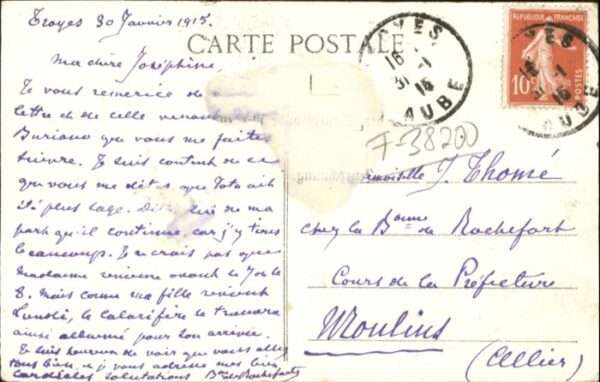 Troyes 30 Janvier 1915.
CARTE POSTALE
Ma chère Joséphine,
Je vous remercie de
lettre et de celle venant
Buriano que vous me faites
suivre. Je suis content de ce
que vous me dites que Toto ait
été plus sage. Dites lui de ma
part qu'il continue, car j'y tiens
beaucoup. Je ne crois pas que
Madame revienne avant le 7 ou le
8. Mais comme ma fille revient
Lundi, le calorifère se trouvera
ainsi allumé pour son arrivée.
Je suis heureux de voir que vous allez
tous bien, et je vous adresse mes bien
cordiales salutations Bon de Rochefort
TROYES
16
31-1
15
AUBE
RÉPUBLIQUE FRANÇAISE
10
F-38200
J. Thomé
chez la Bonne de Rochefort
Cours de la Préfecture
Moulins
(Allier)